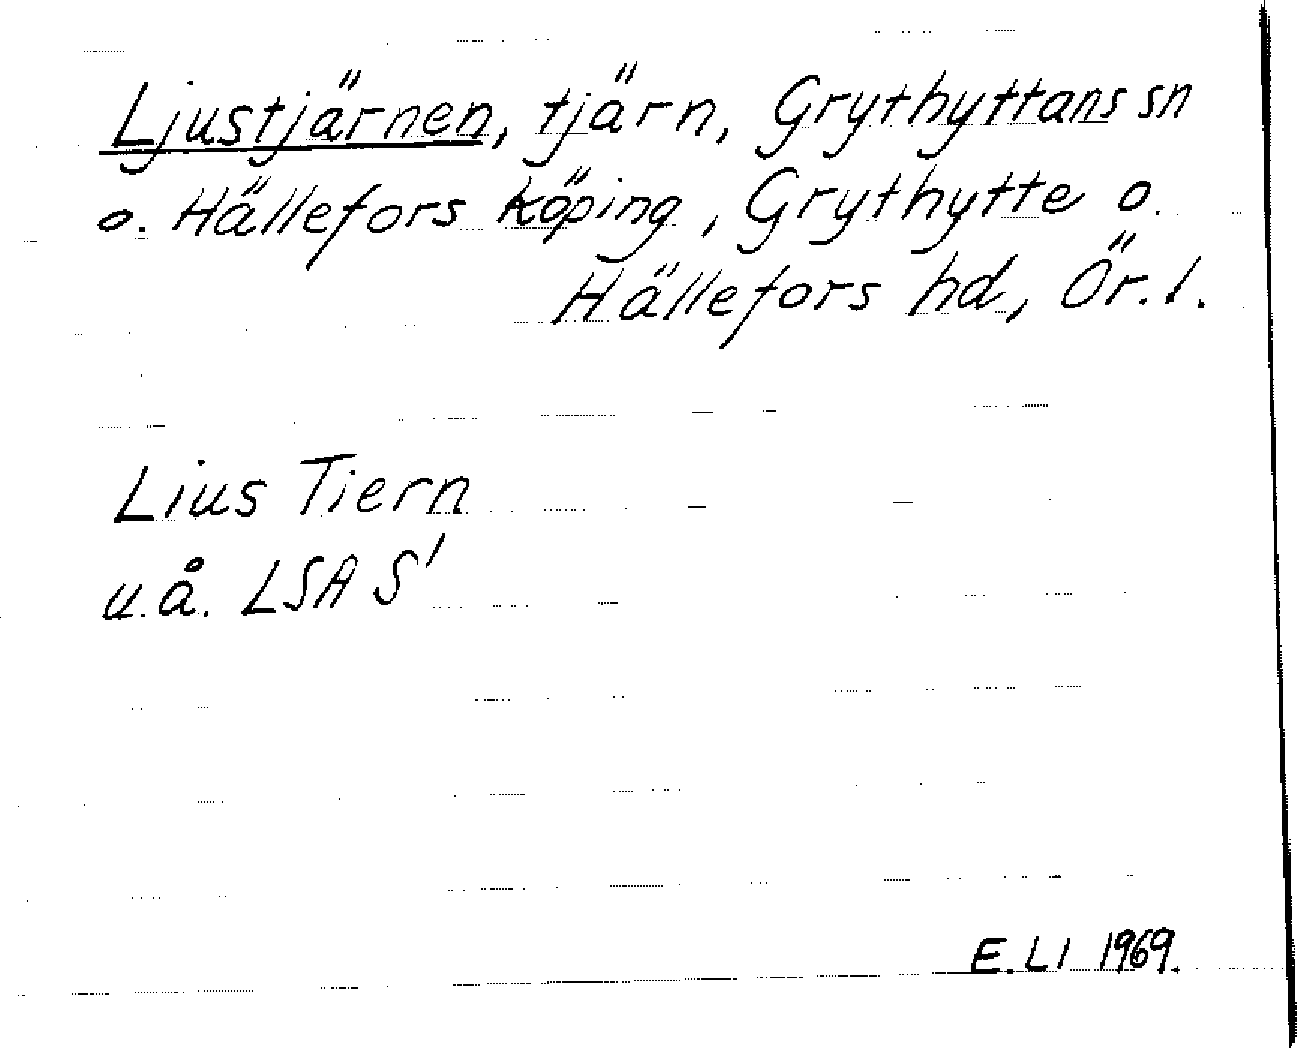 Ljustjärnen, tjärn, Grythyttans sn
o. Hällefors köping, Grythytte o.
Hällefors hd, Ör. l.
Lius Tiern
u.å. LSA S'
E. LI 1969.